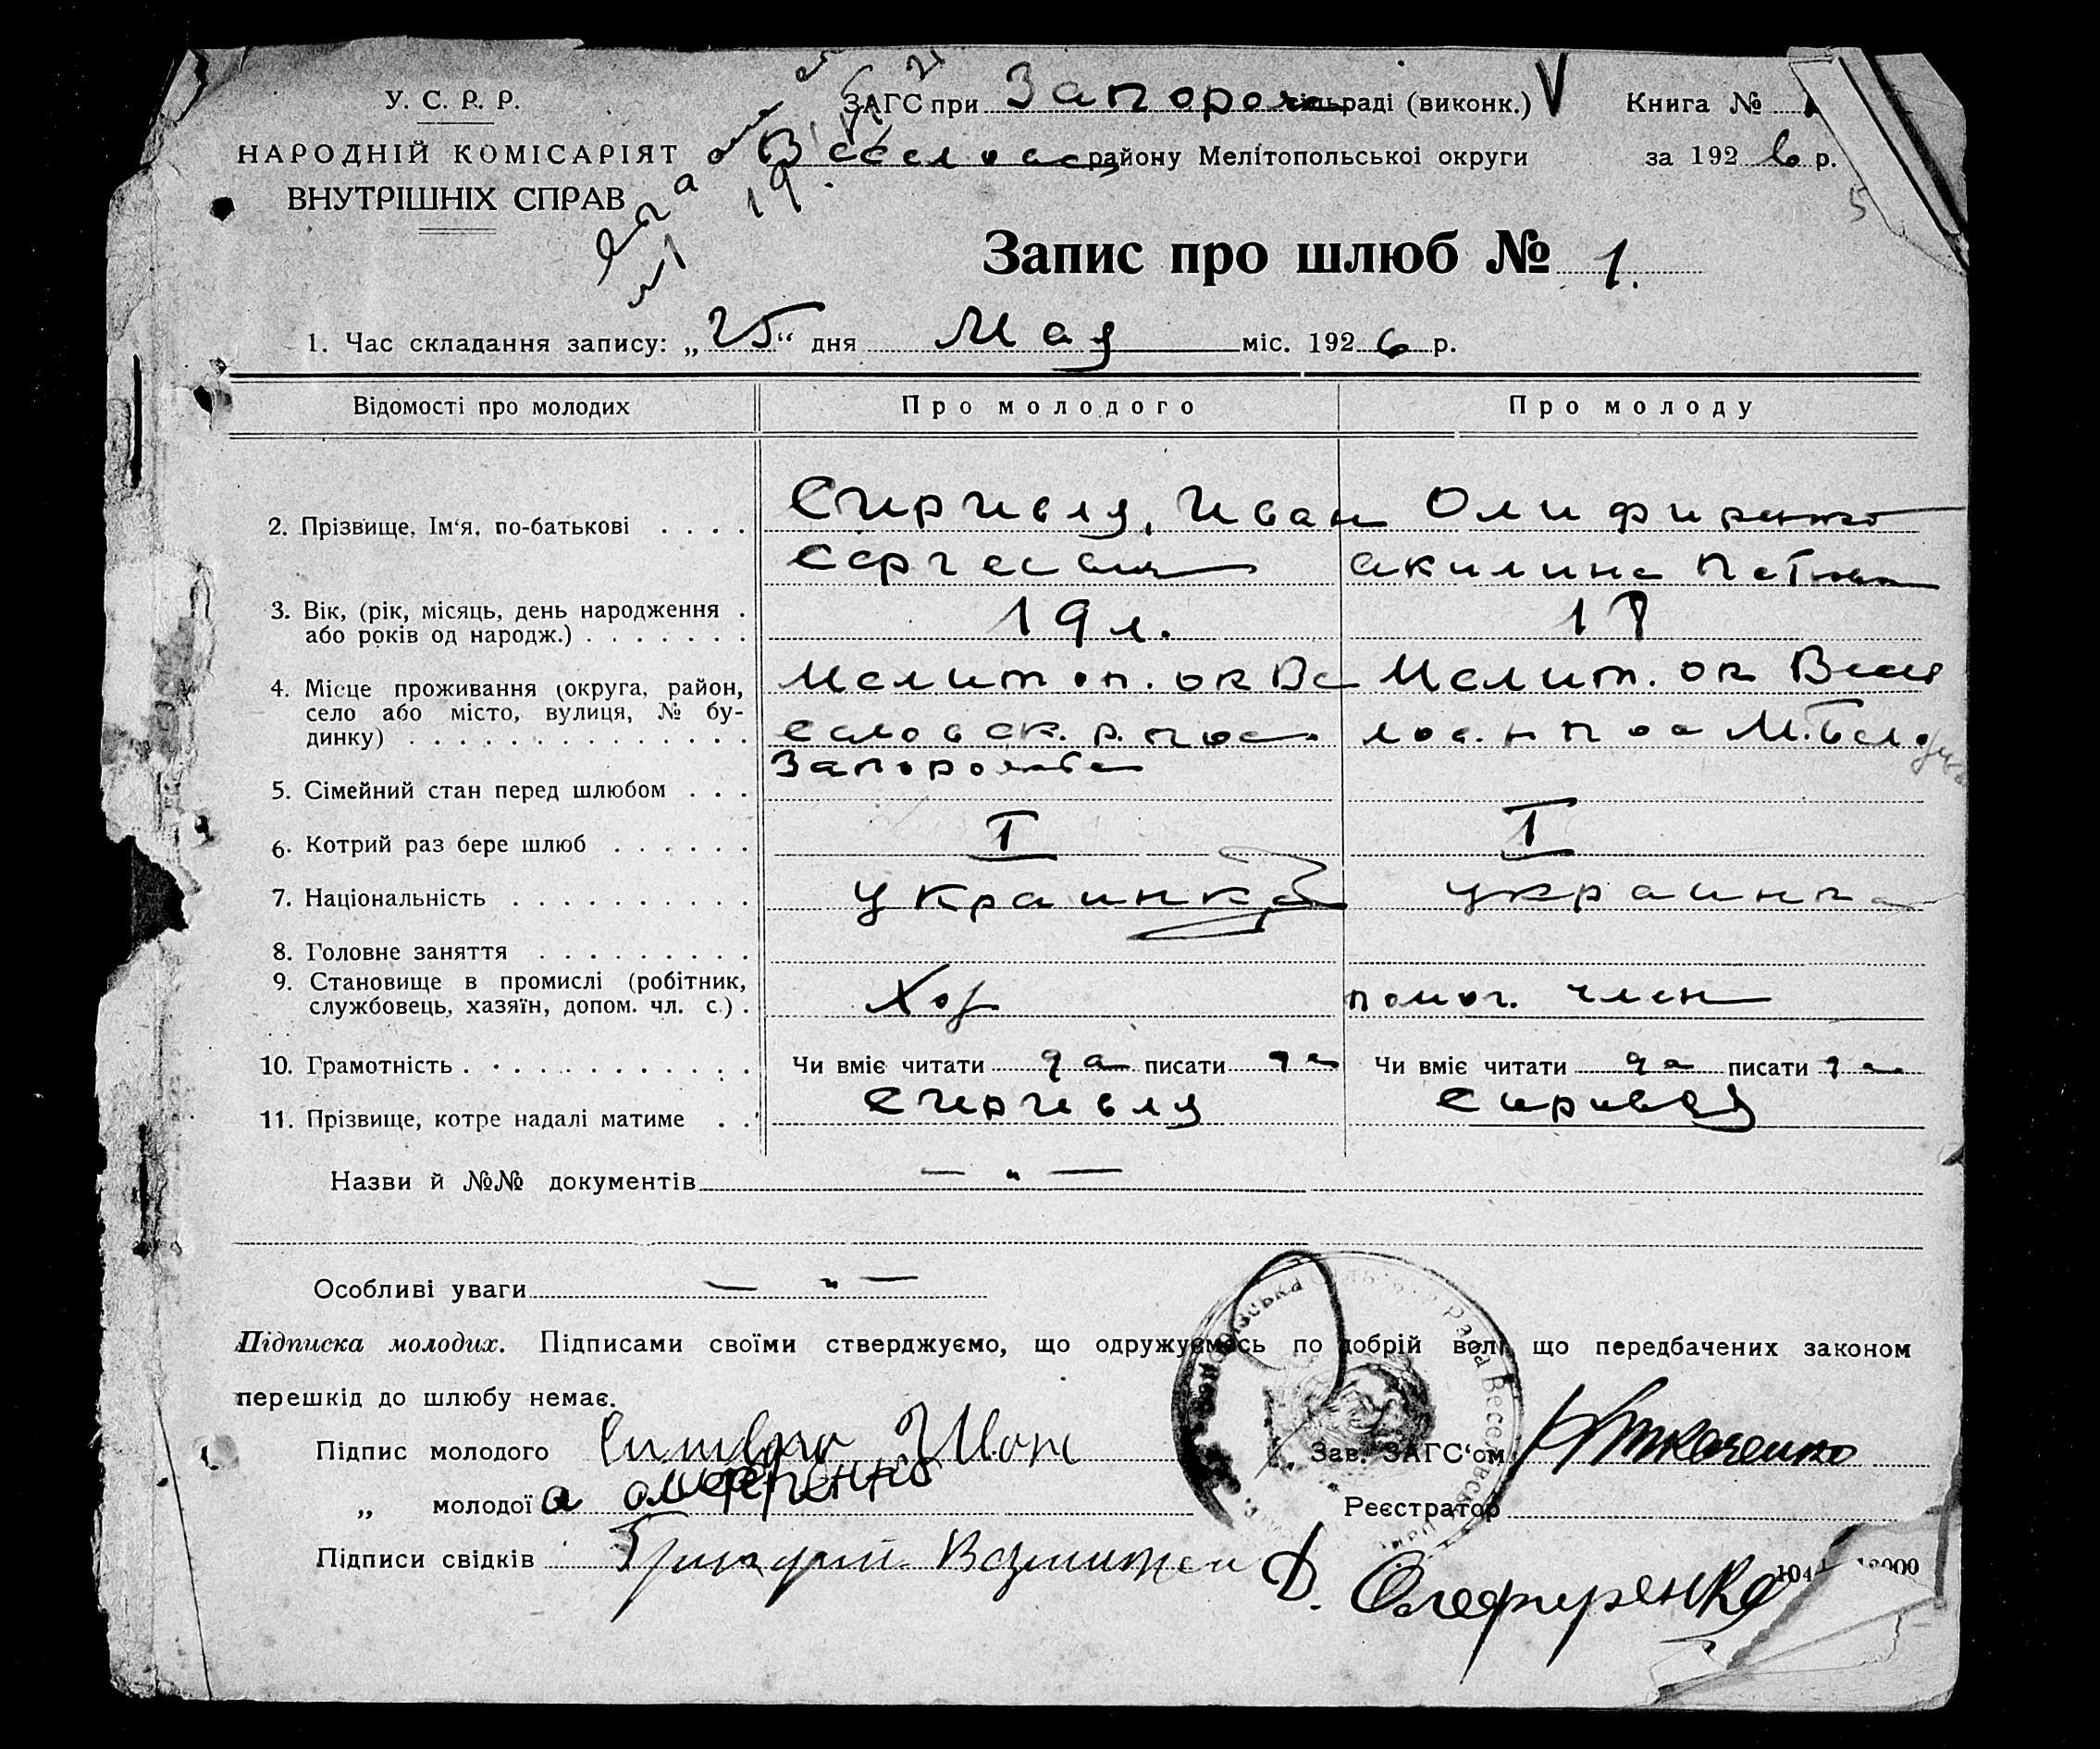 У. С. Р. Р.
НАРОДНІЙ КОМІСАРІЯТ
ВНУТРІШНІХ СПРАВ
ЗАГС при Запорож сільраді (виконк.) V
Веселовс району Мелітопольської округи
Книга №
за 1926 р.
5
Запис про шлюб № 1.
1. Час складання запису: „25“ дня Мая міс. 1926 р.
Відомості про молодих Про молодого Про молоду
2. Прізвище, Ім‘я, по-батькові . . . . Сиривля, Иван Олифиренко
Сергеевич Акилина
3. Вік, (рік, місяць, день народження .
або років од народж.) . . . . . . . 19 л. 18
4. Місце проживання (округа, район, Мелитоп. ок Ве Мелит. ок Весе
село або місто, вулиця, № бу-
динку) . . . . . . . . . . . . . . селовск. р. пос. лов. пос М.Бело
Запорожье
5. Сімейний стан перед шлюбом . . .
6. Котрий раз бере шлюб . . . . . . I I
7. Національність . . . . . . . . . . украинка украинка
8. Головне заняття . . . . . . . . .
9. Становище в промислі (робітник,
службовець, хазяїн, допом. чл. с.) . Хоз помог. член
10. Грамотність . . . . . . . . . . . . Чи вміє читати да писати да Чи вміє читати да писати да
11. Прізвище, котре надалі матиме . . Сиривля Сиривля
Назви й №№ документів — „ —
Особливі уваги — „ —
Підписка молодих. Підписами своїми стверджуємо, що одружуємось по добрій волі, що передбачених законом
перешкід до шлюбу немає.
Підпис молодого Иван
Зав. ЗАГС‘ом Ткаченко
„ молодої а олеференко
Реєстратор
Підписи свідків Григорий
Д. Олеференко